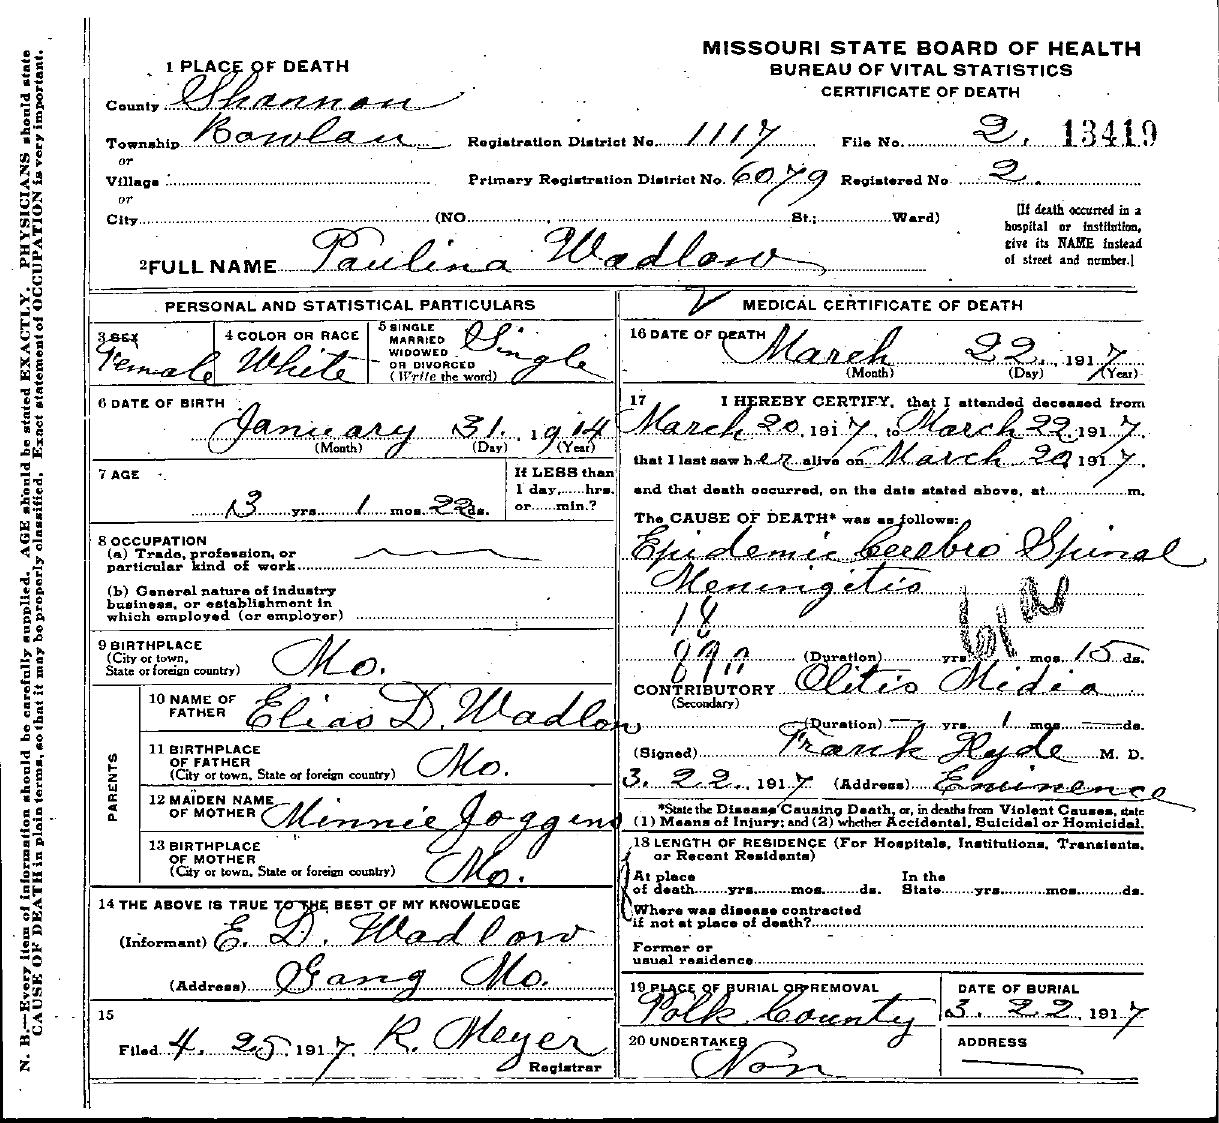 MISSOURI STATE BOARD OF HEALTH
BUREAU OF VITAL STATISTICS
CERTIFICATE OF DEATH
1 PLACE OF DEATH
County Shannon
Township Bowlan Registration District No. 1117 File No. 2. 13419
or
Village Primary Registration District No. 6079 Registered No 2.
or
City (NO. , St.; Ward)
[If death occurred in a
hospital or institution,
give its NAME instead
of street and number.]
2 FULL NAME Paulina Wadlow
PERSONAL AND STATISTICAL PARTICULARS
3 SEX Female
4 COLOR OR RACE White
5 SINGLE
MARRIED
WIDOWED
OR DIVORCED
(Write the word) Single
6 DATE OF BIRTH
January 31. 1914
(Month) (Day) (Year)
7 AGE
3 yrs. 1 mos. 22 ds.
If LESS than
1 day, hrs.
or min.?
8 OCCUPATION
(a) Trade, profession, or
particular kind of work
(b) General nature of industry
business, or establishment in
which employed (or employer)
9 BIRTHPLACE
(City or town,
State or foreign country) Mo.
PARENTS
10 NAME OF
FATHER Elias D. Wadlow
11 BIRTHPLACE
OF FATHER
(City or town, State or foreign country) Mo.
12 MAIDEN NAME
OF MOTHER Minnie Joggins
13 BIRTHPLACE
OF MOTHER
(City or town, State or foreign country) Mo.
14 THE ABOVE IS TRUE TO THE BEST OF MY KNOWLEDGE
(Informant) E. D. Wadlow
(Address) Gang Mo.
15
Filed 4. 25, 1917. R. Meyer
Registrar
MEDICAL CERTIFICATE OF DEATH
16 DATE OF DEATH March 22., 1917
(Month) (Day) (Year)
17 I HEREBY CERTIFY, that I attended deceased from
March 20, 1917, to March 22, 1917,
that I last saw her alive on March 20, 1917,
and that death occurred, on the date stated above, at m.
The CAUSE OF DEATH* was as follows:
Epidemic Cerebro Spinal
Meningitis
18
61a
(Duration) yrs. mos. 15 ds.
CONTRIBUTORY Olitis Midia
(Secondary)
(Duration) yrs. 1 mos. ds.
(Signed) Frank Hyde M. D.
3. 22., 1917 (Address) Eminence
*State the Disease Causing Death, or, in deaths from Violent Causes, state
(1) Means of Injury; and (2) whether Accidental, Suicidal or Homicidal.
18 LENGTH OF RESIDENCE (For Hospitals, Institutions, Transients,
or Recent Residents)
At place
of death yrs. mos. ds.
In the
State yrs. mos. ds.
Where was disease contracted
if not at place of death?
Former or
usual residence
19 PLACE OF BURIAL OR REMOVAL
Polk County
DATE OF BURIAL
3. 22, 1917
20 UNDERTAKER
Non
ADDRESS
N. B.—Every item of information should be carefully supplied. AGE should be stated EXACTLY. PHYSICIANS should state
CAUSE OF DEATH in plain terms, so that it may be properly classified. Exact statement of OCCUPATION is very important.